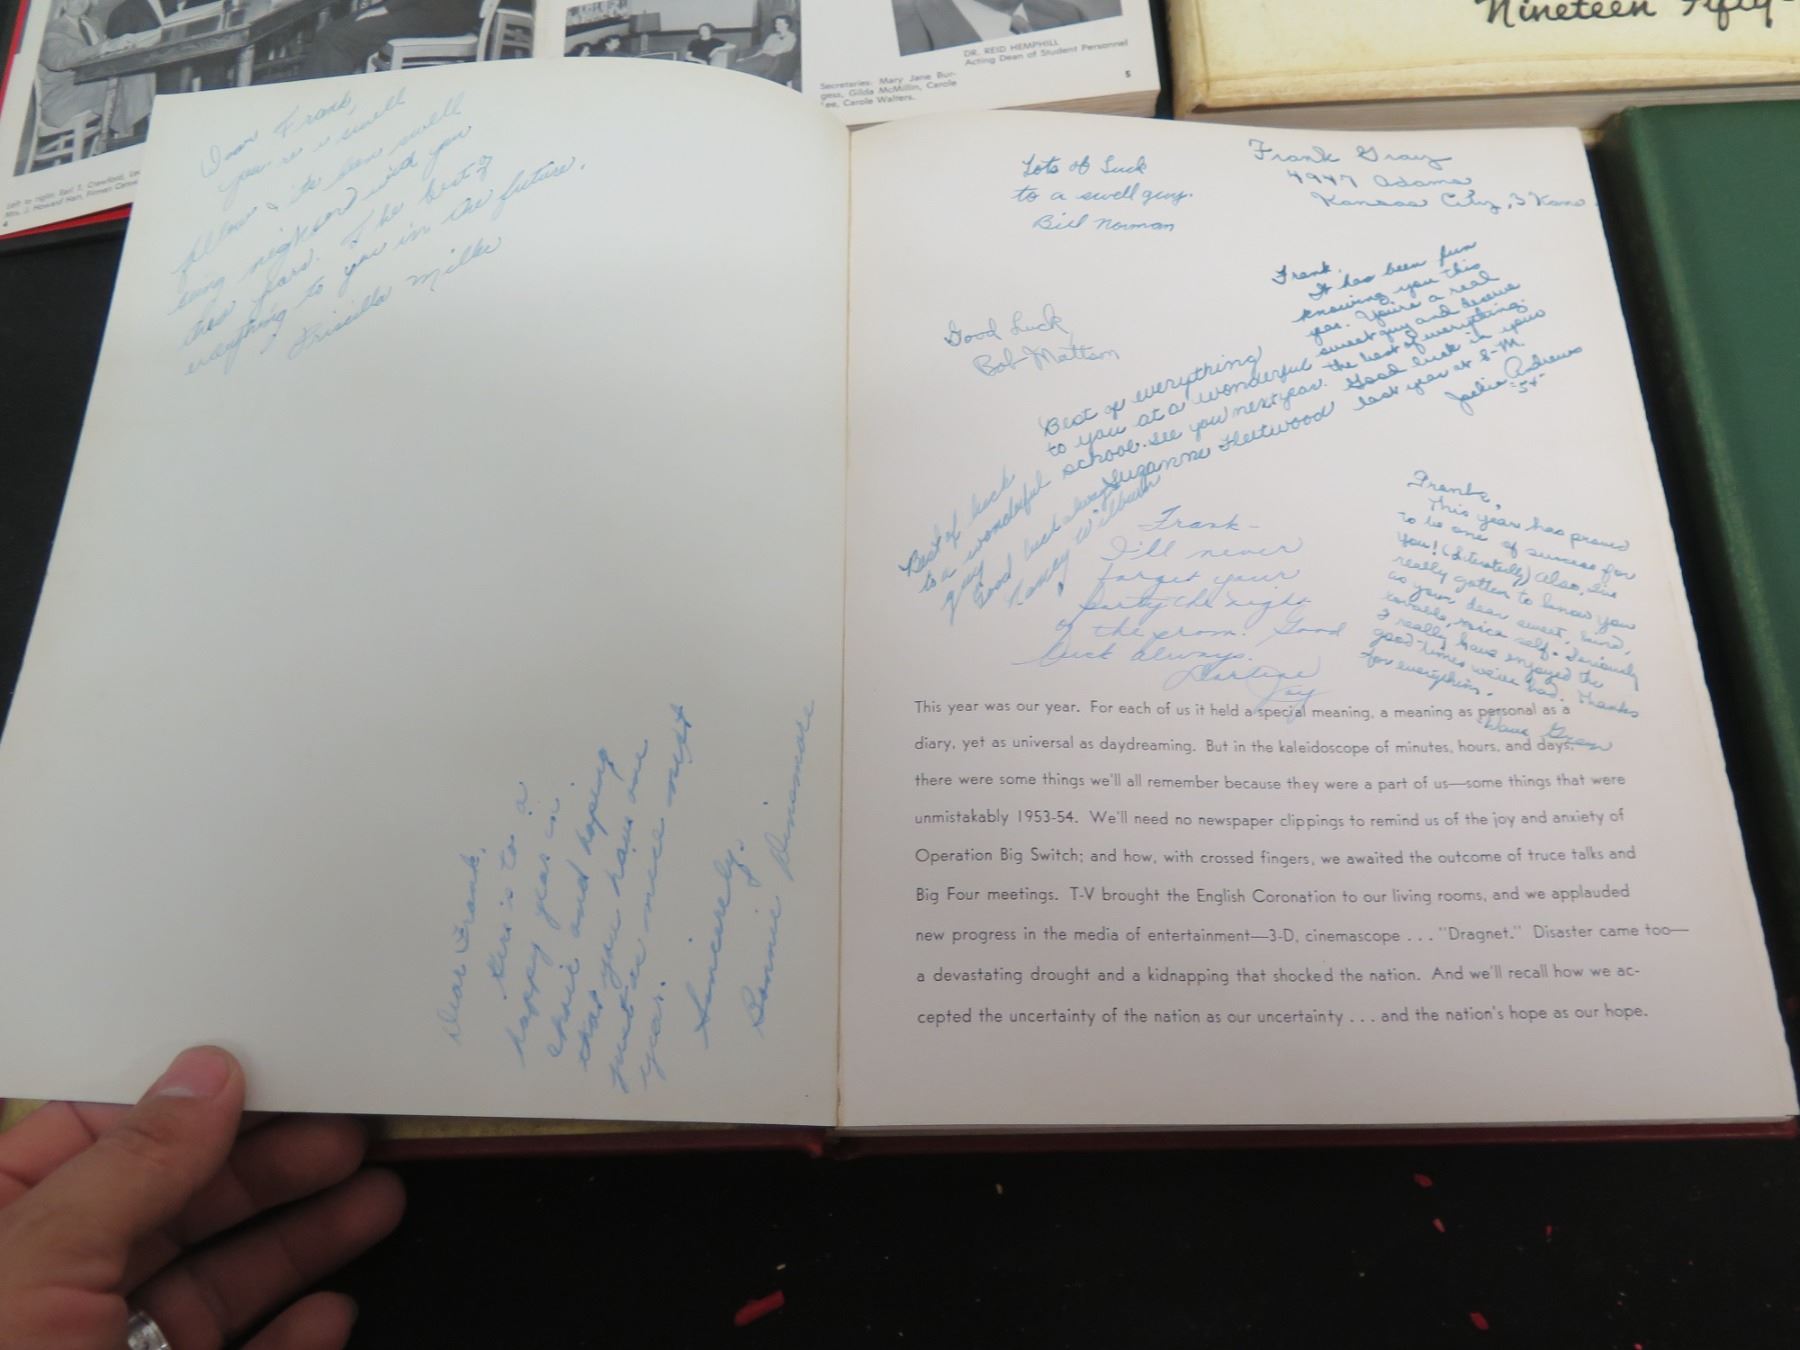 Left to right: Earl T. Crawford,
Mrs. J. Howard Hart,
4
DR. REID HEMPHILL
Acting Dean of Student Personnel
Secretaries: Mary Jane Bur-
gess, Gilda McMillin, Carole
Lee, Carole Walters.
5
Nineteen Fifty-
Dear Frank,
you're a swell
fellow & it's been swell
being neighbors with you
this year. The best of
everything to you in the future.
Priscilla Miller
Dear Frank,
Here is to a
happy year in
choir and hoping
that you have one
just as nice next
year.
Sincerely,
Bonnie Dinsmore
Lots of Luck
to a swell guy.
Bill Norman
Frank Gray
4947 Adams
Kansas City, 3 Kans
Good Luck
Bob Mattson
Frank,
It has been fun
knowing you this
year. You're a real
sweet guy and deserve
the best of everything.
Good luck in your
last year at S-M.
Jackie Andrews
"54"
Best of everything
to you at a wonderful
school. See you next year.
Suzanne Fleetwood
Best of luck
to a wonderful
guy
Good luck always
Nancy
Frank-
I'll never
forget your
party the night
of the prom. Good
luck always.
Darlene
Joy
Frank,
This year has proved
to be one of success for
you! (Literately) Also, I've
really gotten to know you
as your dear sweet, kind,
lovable, nice self. Seriously
I really have enjoyed the
good-times we've had. Thanks
for everything.
Gray
This year was our year. For each of us it held a special meaning, a meaning as personal as a
diary, yet as universal as daydreaming. But in the kaleidoscope of minutes, hours, and days,
there were some things we'll all remember because they were a part of us—some things that were
unmistakably 1953-54. We'll need no newspaper clippings to remind us of the joy and anxiety of
Operation Big Switch; and how, with crossed fingers, we awaited the outcome of truce talks and
Big Four meetings. T-V brought the English Coronation to our living rooms, and we applauded
new progress in the media of entertainment—3-D, cinemascope . . . "Dragnet." Disaster came too—
a devastating drought and a kidnapping that shocked the nation. And we'll recall how we ac-
cepted the uncertainty of the nation as our uncertainty . . . and the nation's hope as our hope.